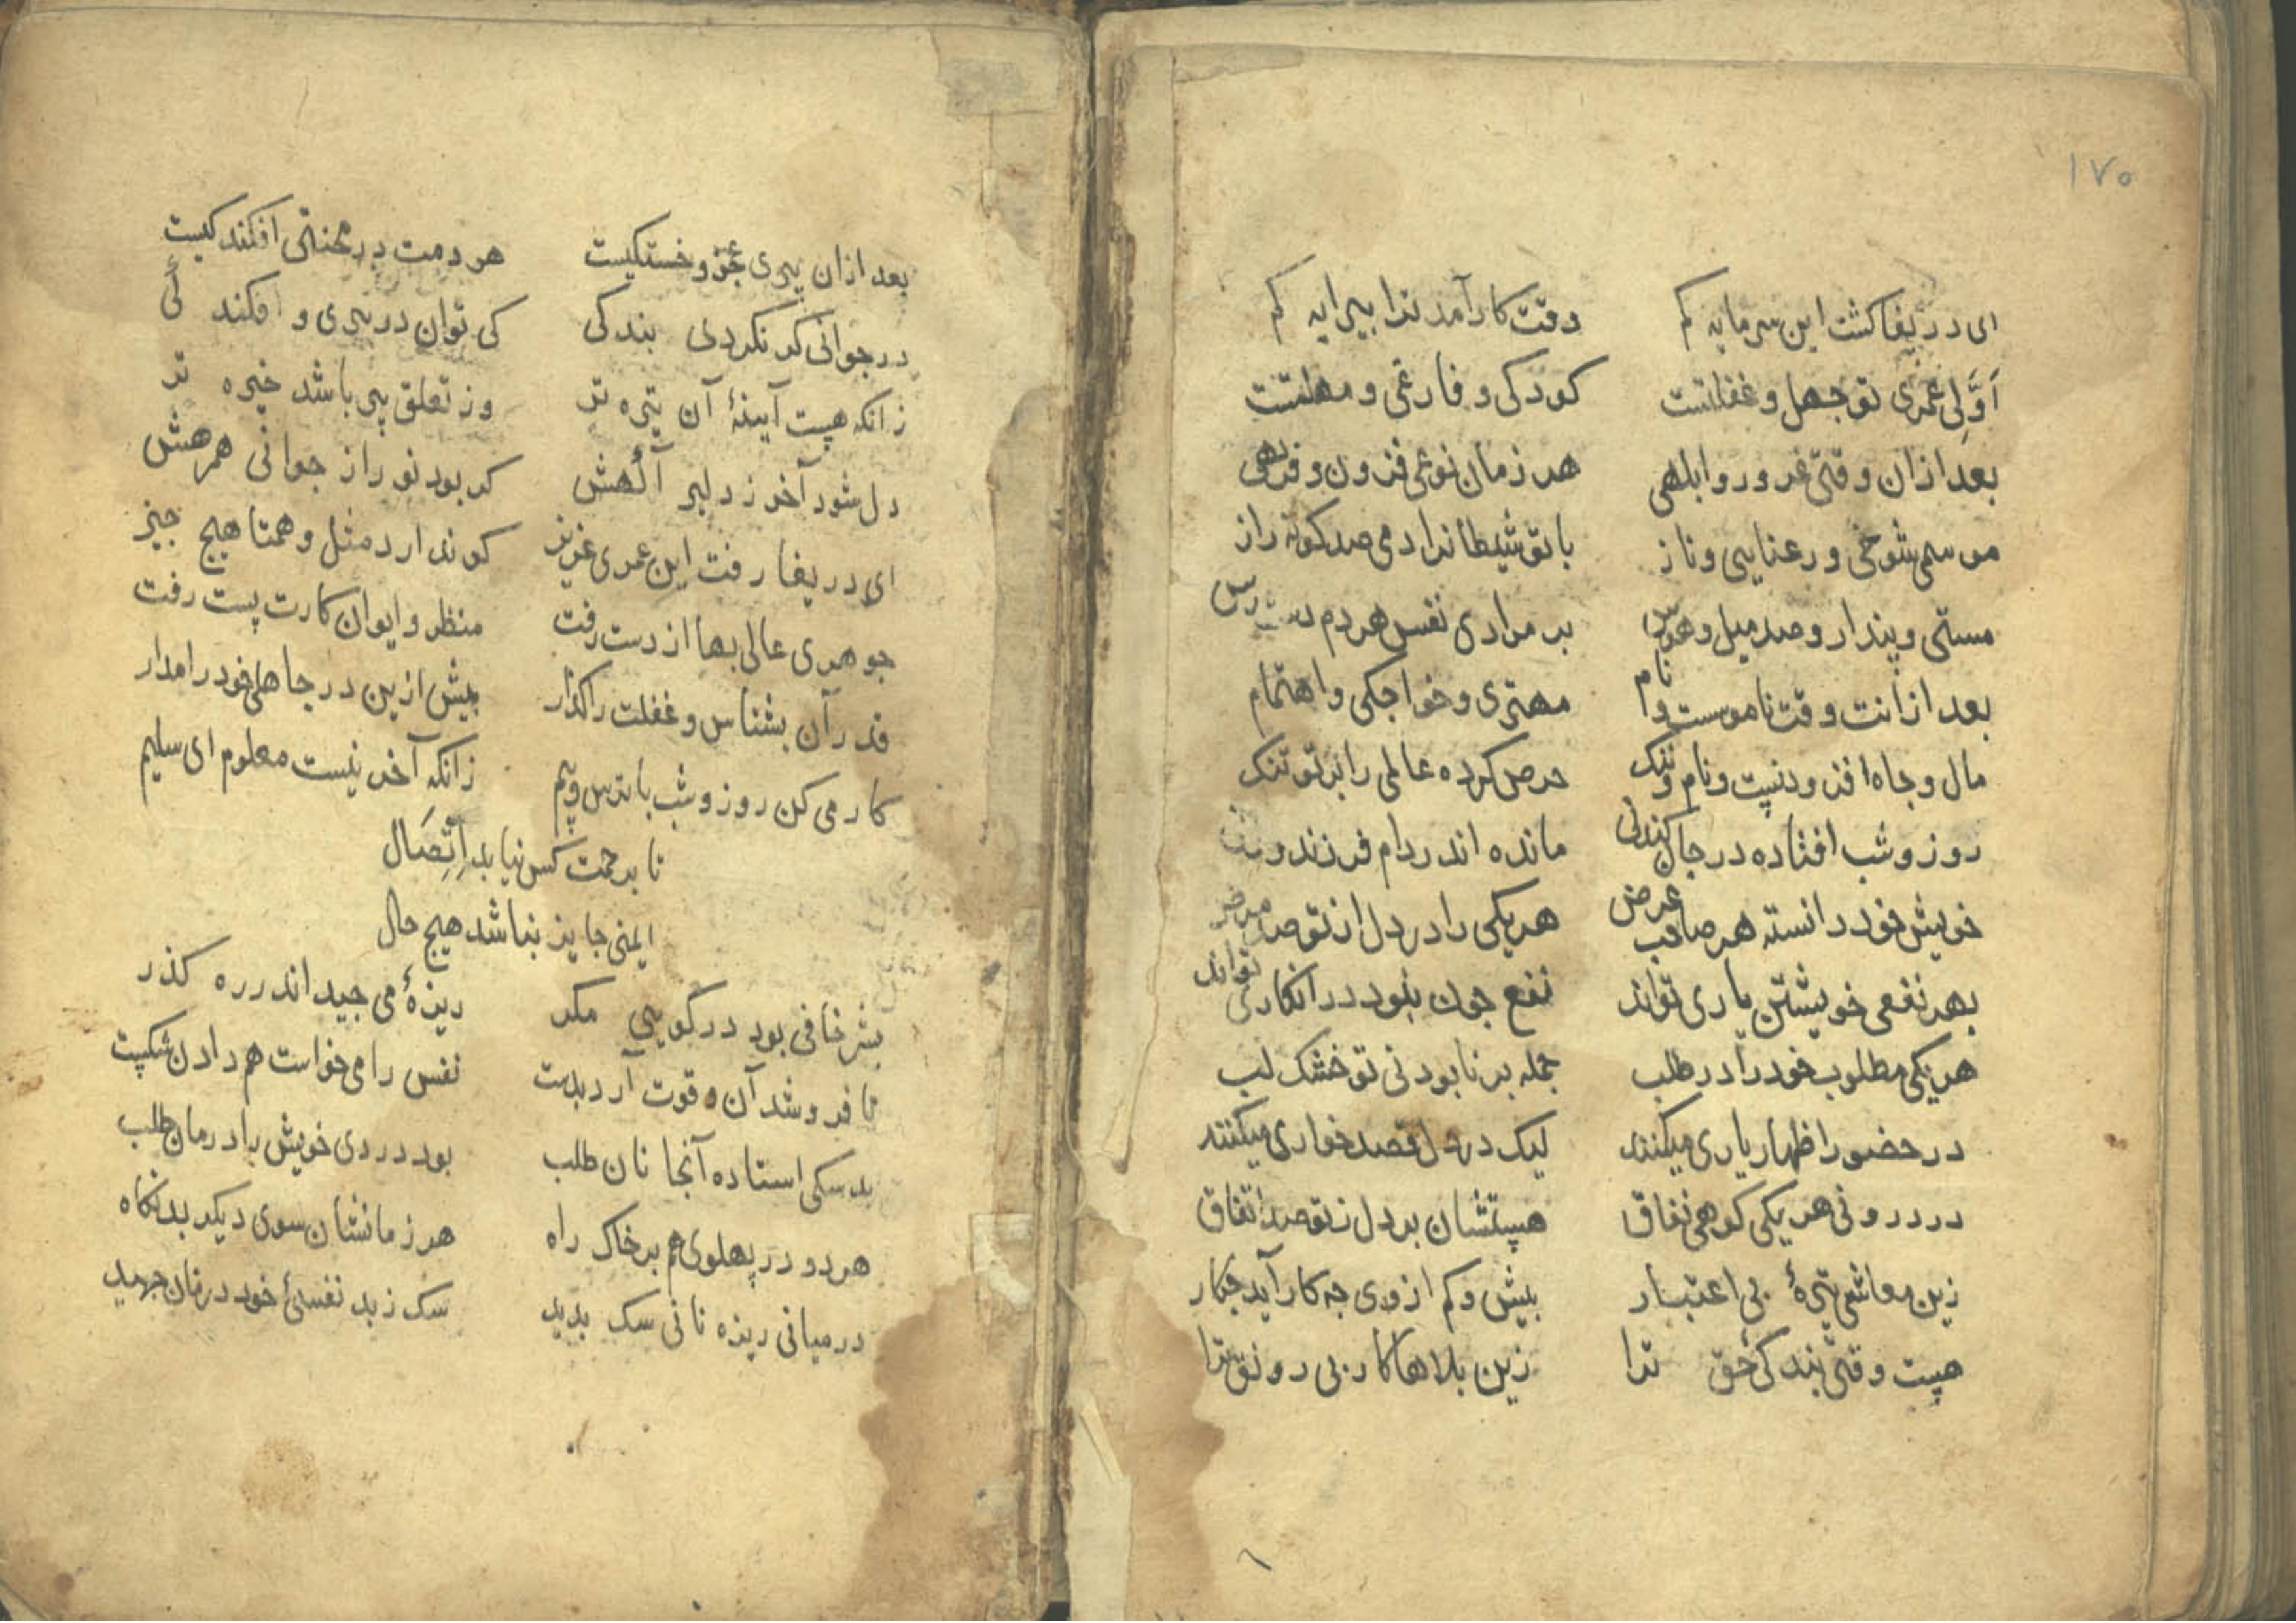 ۱۷۰
ای دریغا کشت این سرمایه کم    وقت کار آمد ترا بیرایه کم
اَوَّلِی عمری تو جهل و غفلتست    کودکی و فارغی و مهلتست
بعد ازان وقتی غرور و ابلهی    هر زمان نوعی فزون و فربهی
موسمی شوخی و رعنایی و ناز    با تو شیطانرا دمی صد کونه راز
مستی و پندار و صد میل و هوس    بر مرادی نفس هر دم دست رس
بعد ازانت وقت ناموست و نام    مهتری و خواجکی و اهتمام
مال و جاه افزودنیست و نام و ننک    حرص کرده عالمی را بر تو تنک
روز و شب افتاده در جان کندنی    مانده اندر دام فرزند و
خویش خود دانسته هر صاحب غرض    هر یکی را در دل از تو صد مرض
بهر نفعی خویشتن یاری تواند    نفع جون نبود در انکاری تواند
هر یکی مطلوب خود را در طلب    جمله بر نابودنی تو خشک لب
در حضور اظهار یاری میکنند    لیک در دل قصد خواری میکنند
در درونی هر یکی کوهی نفاق    هستشان بر دل ز تو صد اتفاق
زین معاشی تیرهٔ بی اعتبار    بیش و کم از وی جه کار آید جکار
هست وقتی بندکیٔ حق ترا    زین بلاها کار بی رونق ترا
بعد ازان پیری عجز و خستکیست    هر دمت در محنتی افکندکیست
در جوانی کر نکردی بندکی    کی توان در پیری و افکندکی
زانکه هست آیینهٔ آن تیره تر    وز تعلق پی باشد خیره تر
دل شود آخر ز دلبر آکهش    کر بود نور از جوانی همرهش
ای دریغا رفت این عمری عزیز    کو ندارد مثل و همتا هیج جیز
جوهری عالی بها از دست رفت    منظر و ایوان کارت پست رفت
قدر آن بشناس و غفلت را کذار    بیش ازین در جاهلی خود را مدار
کار می کن روز و شب با ترس و بیم    زانکه آخر نیست معلوم ای سلیم
تا برحمت کس نیابد اِتِّصَال
ایمنی جایز نباشد هیج حال
بشر خافی بود در کویی مکر    ریزهٔ می جید اندر ره کذر
تا فروشد آن و قوت آرد بدست    نفس را می خواست هم دادن شکست
بد سکی استاده آنجا نان طلب    بود دردی خویش را درمان طلب
هر دو در پهلوی هم بر خاک راه    هر زمانشان سوی دیکر بد نکاه
در میانی ریزه نانی سک بدید    سک ز بد نفسیٔ خود در نان جهید